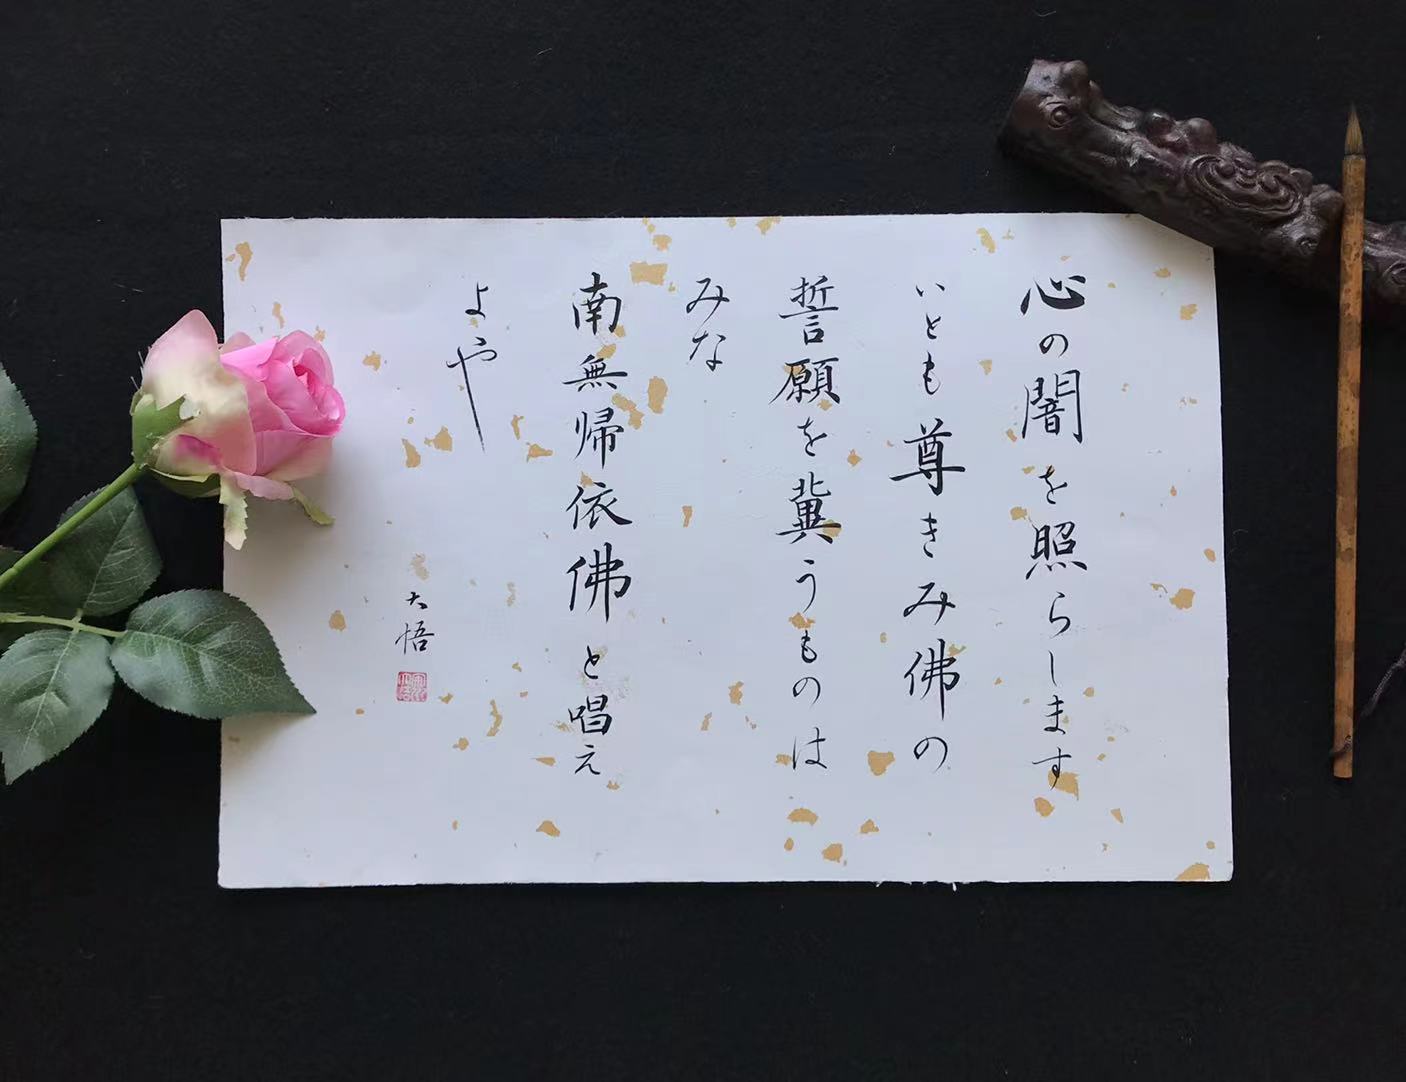 心の闇を照らします
いとも尊きみ佛の
誓願を冀うものは
みな
南無帰依佛と唱え
よや
大悟